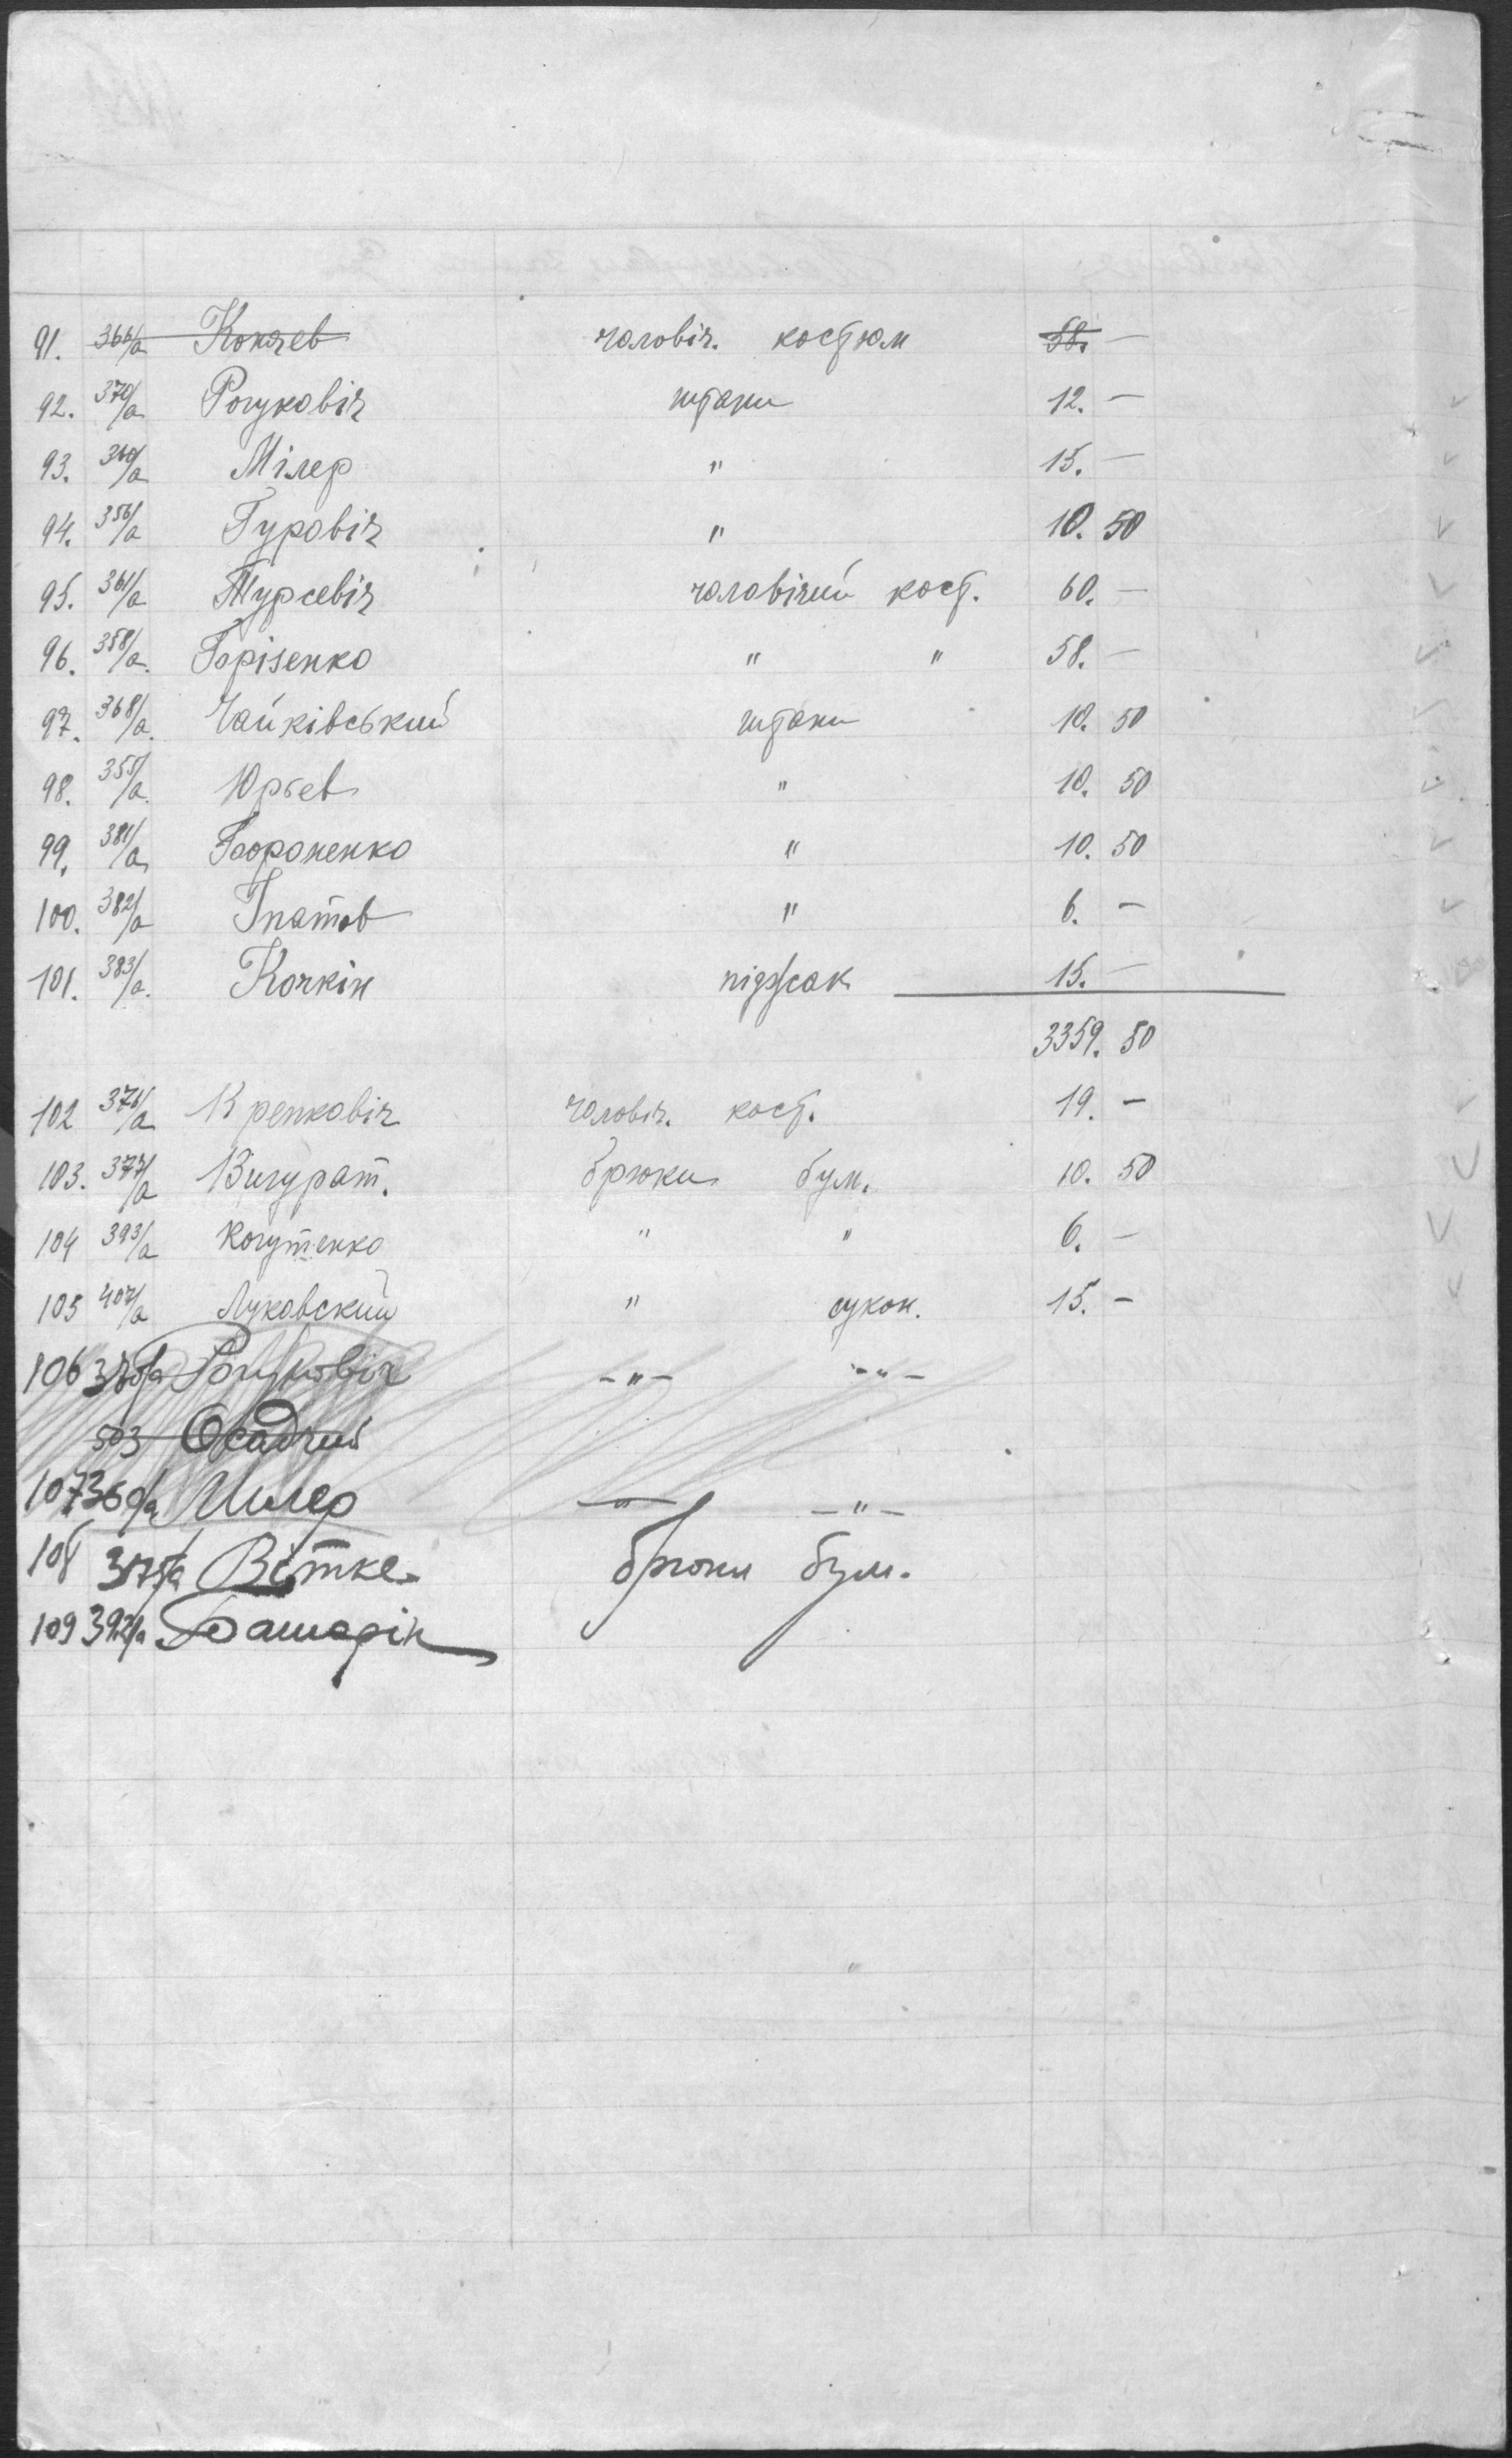 91. 366/а Кокчев чоловіч. костюм 58. —
92. 370/а Рогуковіч штани 12. —
93. 360/а Мілер " 15. —
94. 356/а Гуровіч " 10. 50
95. 361/а Турсевіч чоловічий кост. 60. —
96. 358/а. Борізенко " " 58. —
97. 368/а. Чайківський штани 10. 50
98. 355/а. Юрьев " 10. 50
99. 381/а " 10. 50
100. 382/а Іпатов " 6. —
101. 383/а. Кочкін підзсак 15. —
3359. 50
102 376/а Кренковіч чоловіч. кост. 19. —
103. 377/а Вигурат. брюки бум. 10. 50
104 393/а Когутенко " " 6. —
105 407/а Луковский " сукон. 15. —
106 370/а Рогуковіч —"— —"—
503 Осадчий
107 360/а Милер —"— —"—
108 375/а Вітке брюки бум.
109 392/а Башарін